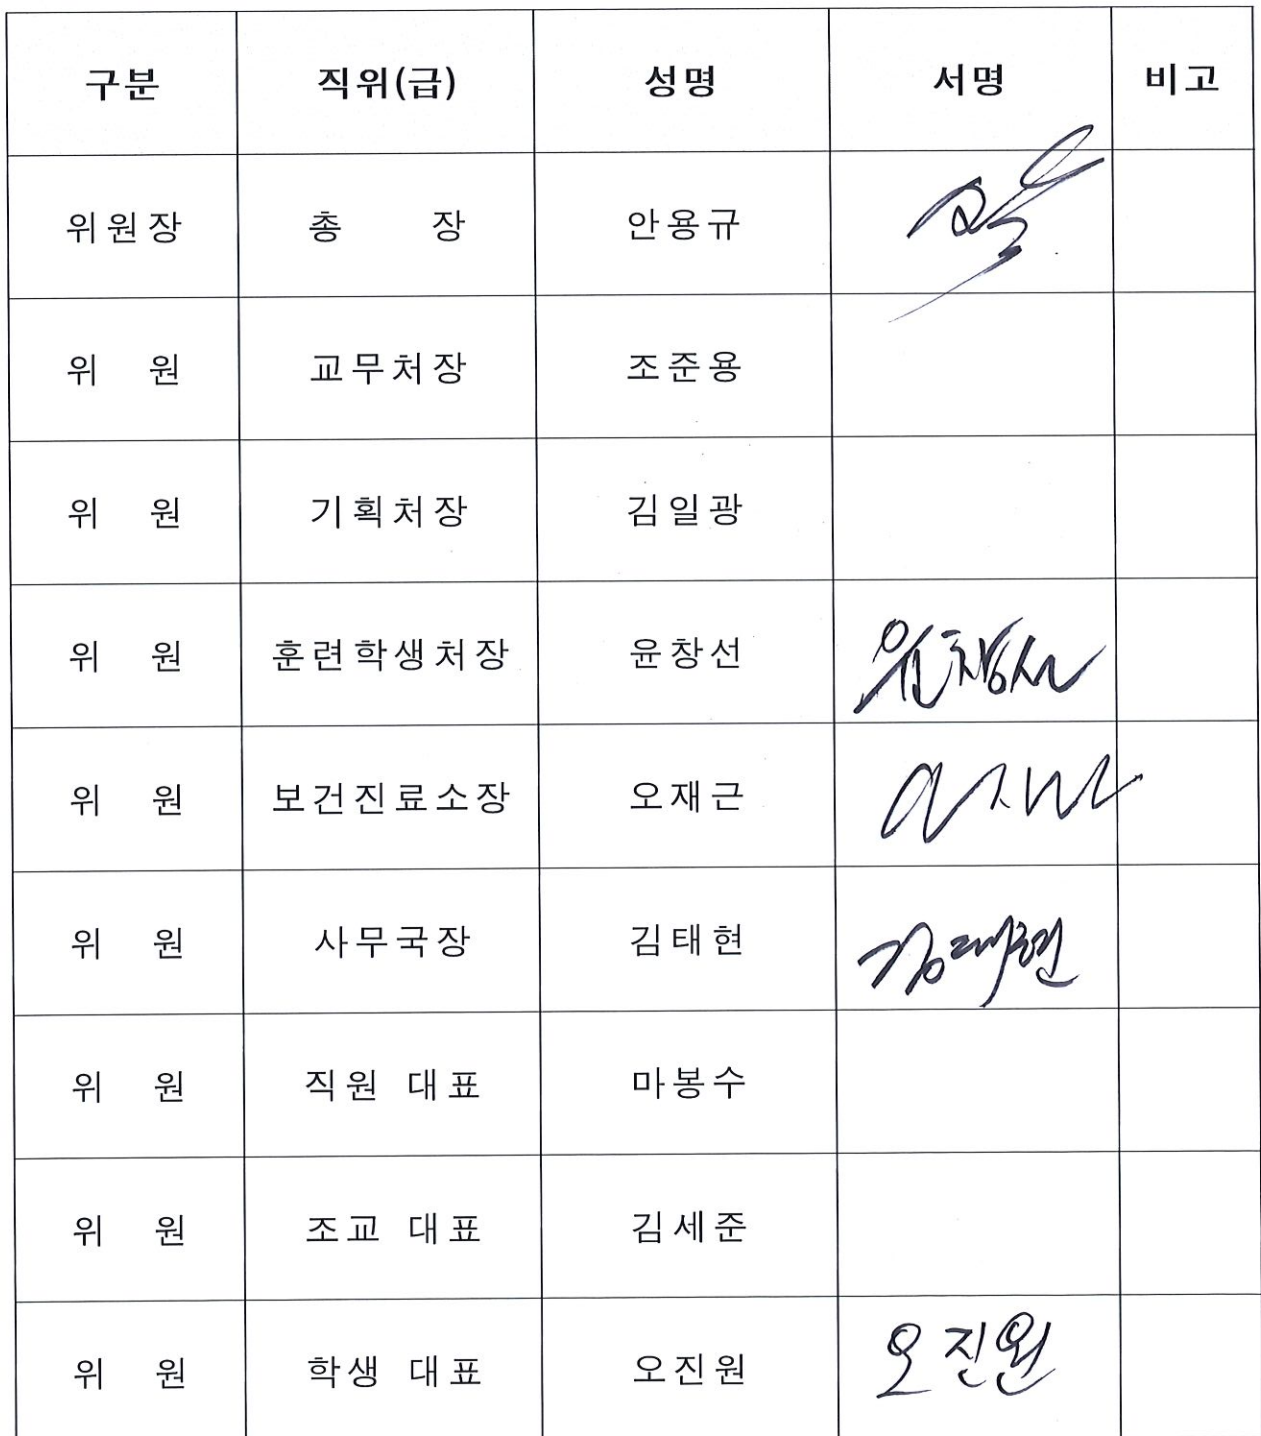 구분 직위(급) 성명 서명 비고
위원장 총 장 안용규
위 원 교무처장 조준용
위 원 기획처장 김일광
위 원 훈련학생처장 윤창선 윤창선
위 원 보건진료소장 오재근
위 원 사무국장 김태현 김태현
위 원 직원 대표 마봉수
위 원 조교 대표 김세준
위 원 학생 대표 오진원 오진원